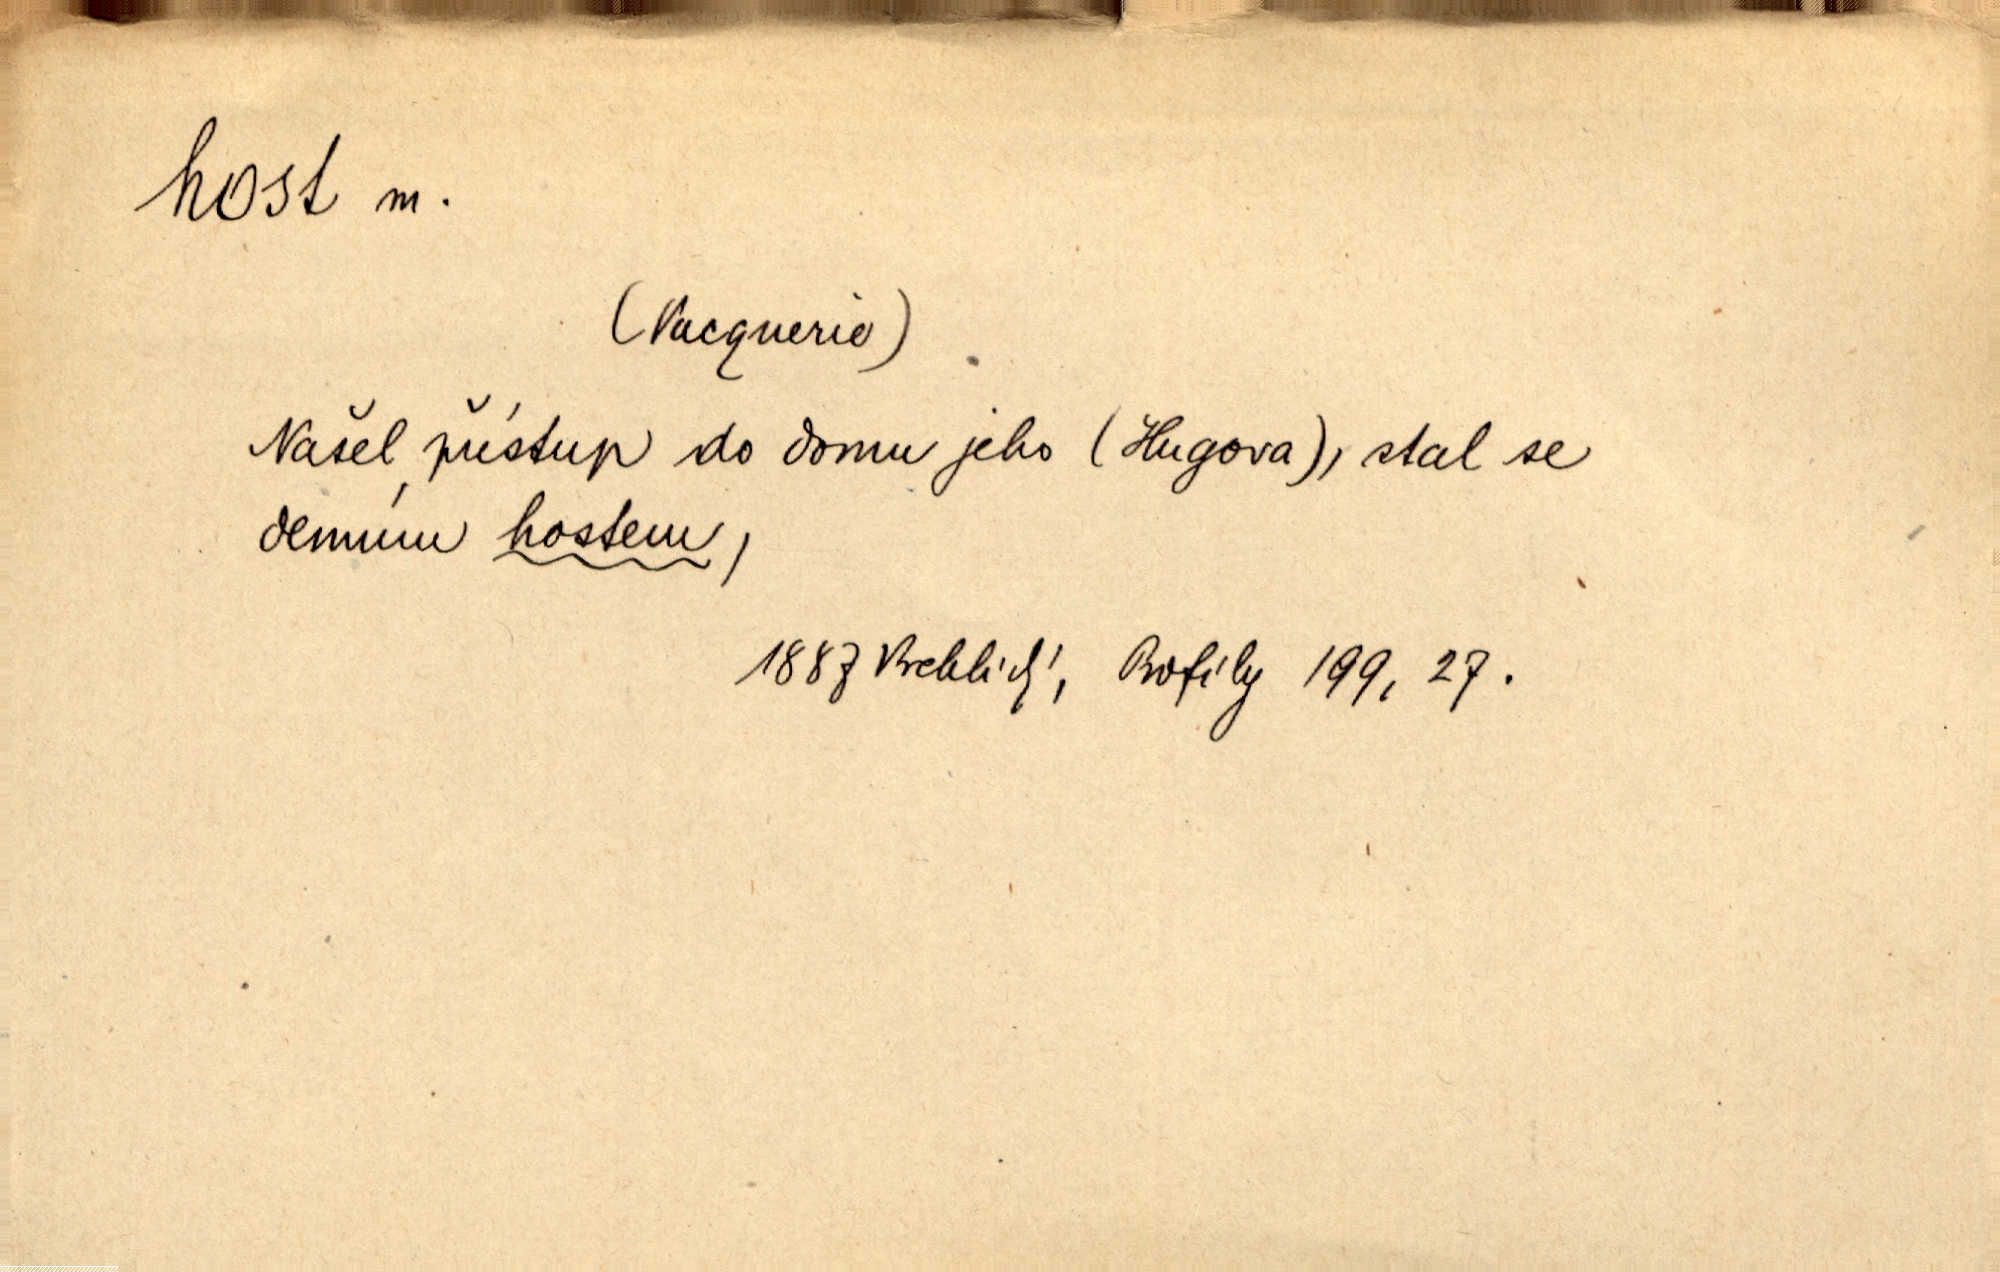 host m.
(Vacquerie)
Našel přístup do domu jeho (Hugova), stal se
denním hostem,
1887 Vrchlický, Profily 199, 27.